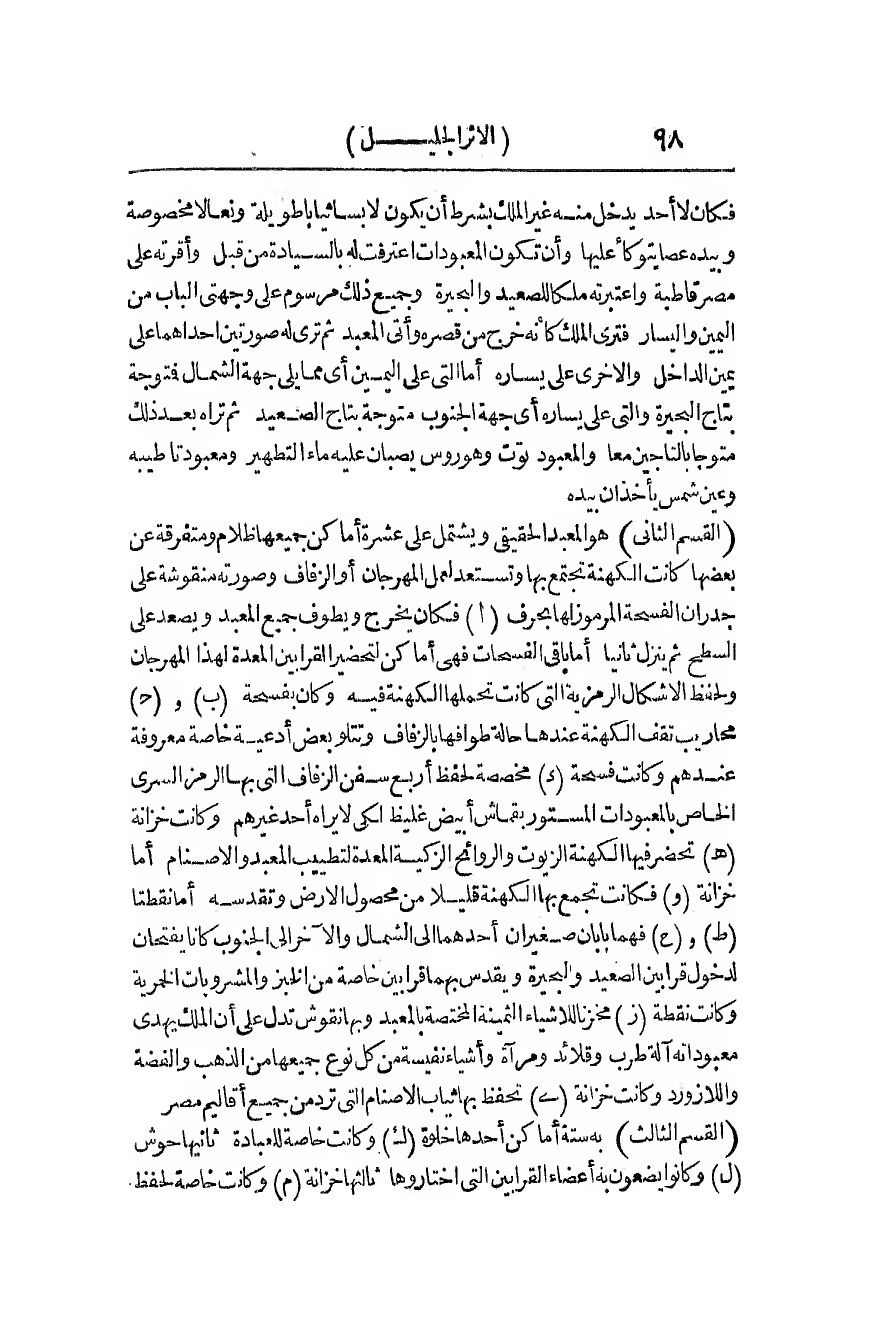 ٩٨ (الاثر الجليل)
فكان لا أحد يدخل منه غير الملك بشرط أن يكون لابسا ثيابا طويلة ونعالا مخصوصة
وبيده عصا يتوكأ عليها وأن تكون المعبودات اعترفت له بالسيادة من قبل وأقرته على
مصر قاطبة واعتبرته ملكا للصعيد والبحيرة وجميع ذلك مرسوم على وجهتى الباب من
اليمين واليسار فترى الملك كأنه خرج من قصره وأتى المعبد ثم ترى له صورتين احداهما على
يمين الداخل والاخرى على يساره أما التى على اليمين أى مما يلى جهة الشمال فتوجة
بتاج البحيرة والتى على يساره أى جهة الجنوب متوجة بتاج الصعيد ثم تراه بعد ذلك
متوجا بالتاجين معا والمعبود توت وهوروس يصبان عليه ماء التطهير ومعبودتا طيبه
وعين شمس يأخذان بيده
(القسم الثانى) هو المعبد الحقيقى ويشتمل على عشرة أماكن جميعها ظلام ومتفرقة عن
بعضها كانت الكهنة تجتمع بها وتستعد لعمل المهرجان أو الزفاف وصورته منقوشة على
جدران الفسحة المرموز لها بحرف (أ) فكان يخرج ويطوف جميع المعبد ويصعد على
السطح ثم ينزل ثانيا أما باقى الفسحات فهى أماكن لتحضير القرابين المعدة لهذا المهرجان
ولحفظ الاشكال الرمزية التى كانت تحملها الكهنة فيه وكان بفسحة (ب) و (ح)
محاريب تقف الكهنة عندها حالة طوافها بالزفاف وتتلو بعض أدعية خاصة معروفة
عندهم وكانت فسحة (د) مخصصة لحفظ أربع سفن الزفاف التى بها الرمز السرى
الخاص بالمعبودات المستور بقماش أبيض غليظ لكى لا يراه أحد غيرهم وكانت خزانة
(ه) تحضر فيها الكهنة الزيوت والروائح الزكية المعدة لتطييب المعبد والاصنام أما
خزانة (و) فكانت تجمع بها الكهنة قليلا من محصول الارض وتقدسه أما نقطتا
(ط) و (ح) فهما بابان صغيران أحدهما الى الشمال والآخر الى الجنوب كانا يفتحان
لدخول قرابين الصعيد والبحيرة ويقدس بهما قرابين خاصة من الخبز والمشروبات الخمرية
وكانت نقطة (ز) مخزنا للاشياء الثمينة المختصة بالمعبد وبها نقوش تدل على أن الملك يهدى
معبوداته آلة طرب وقلائد ومرآة وأشياء نفيسة من كل نوع جميعها من الذهب والفضة
واللازورد وكانت خزانة (ى) تحفظ بها ثياب الاصنام التى ترد من جميع أقاليم مصر
(القسم الثالث) به ستة أماكن أحدها خلوة (ك) وكانت خاصة للعبادة ثانيها حوش
(ل) وكانوا يضعون به أعضاء القرابين التى اختاروها ثالثها خزانة (م) وكانت خاصة لحفظ